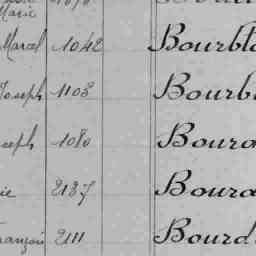 Marie
Marcel 1042 Bourbl
Joseph 1103 Bourb
seph 1080 Bour
ie 2137 Bour
rançois 2111 Bourd